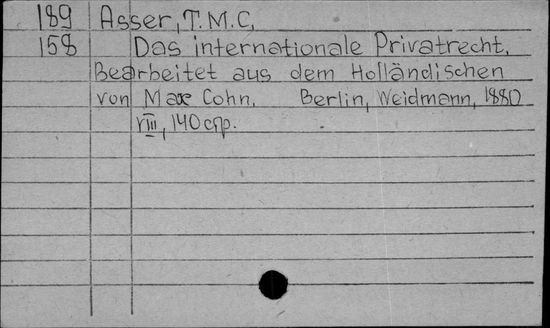 189 Asser, T.M.C.
158 Das internationale Privatrecht.
Bearbeitet aus dem Holländischen
von Max Cohn. Berlin, Weidmann, 1880
VIII, 140 стр.